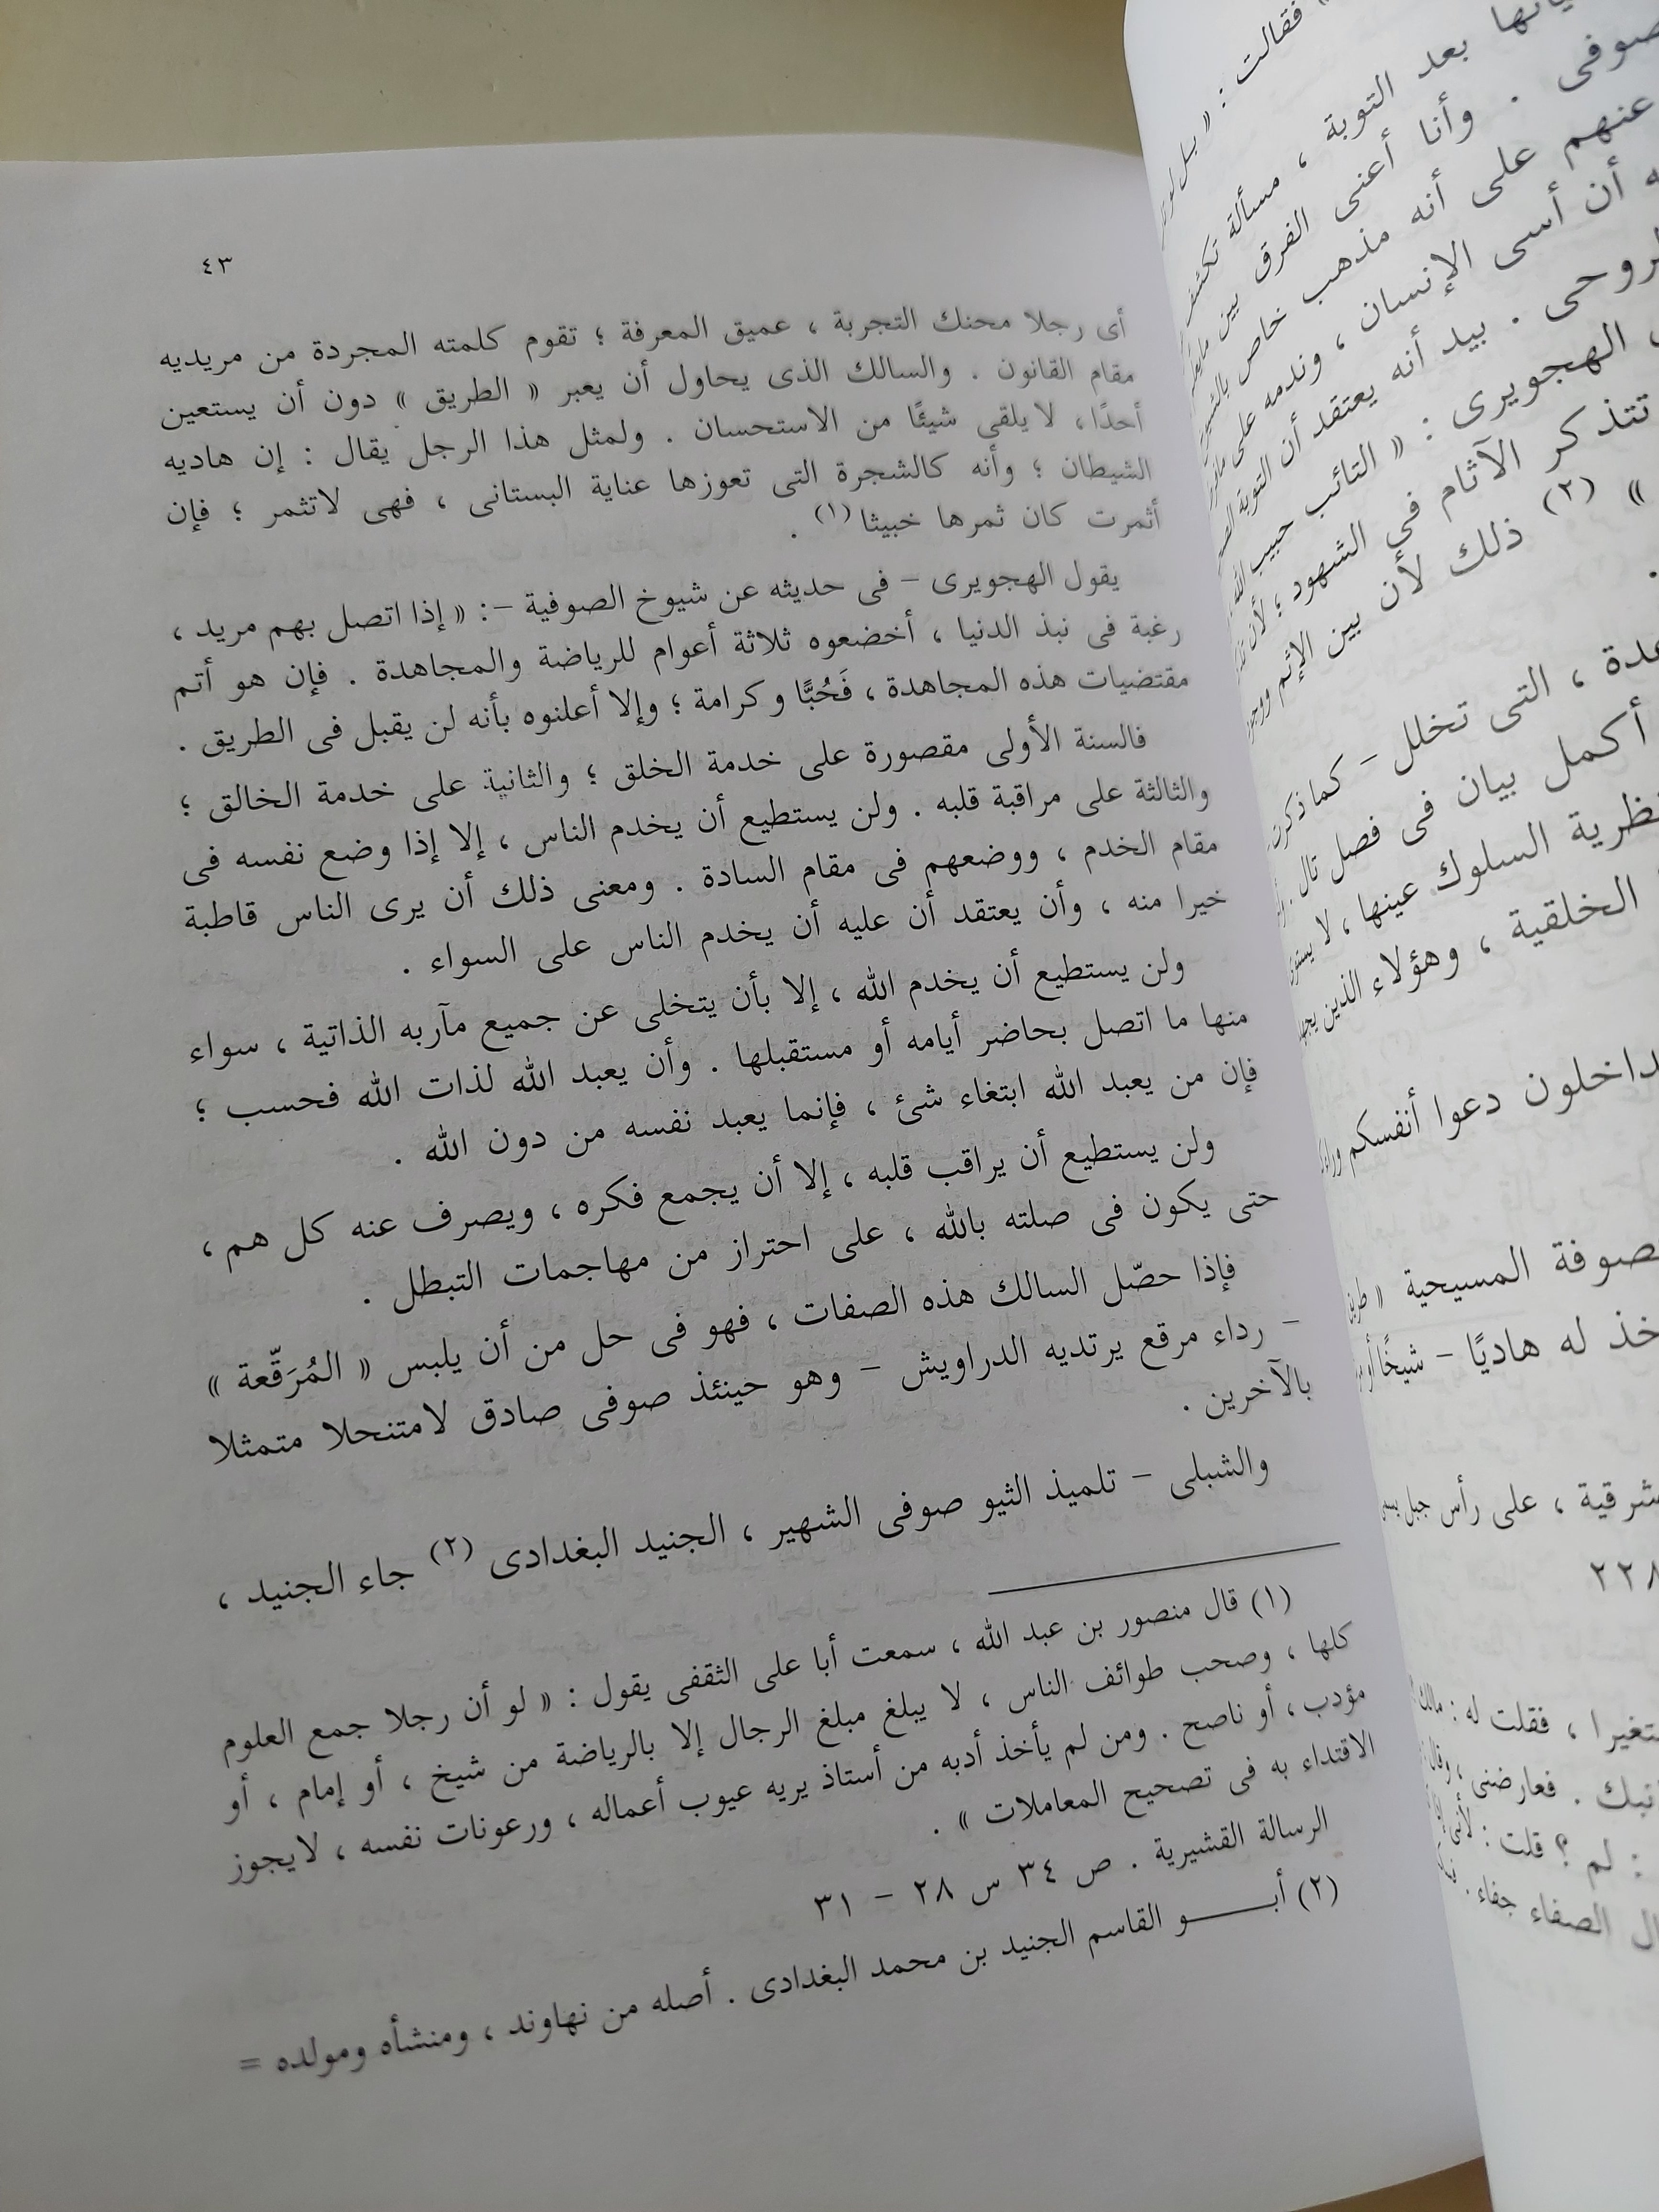 ٤٣
أى رجلا محنك التجربة ، عميق المعرفة ؛ تقوم كلمته المجردة من مريديه
مقام القانون . والسالك الذى يحاول أن يعبر « الطريق » دون أن يستعين
أحدًا، لا يلقى شيئًا من الاستحسان . ولمثل هذا الرجل يقال : إن هاديه
الشيطان ؛ وأنه كالشجرة التى تعوزها عناية البستانى ، فهى لاتثمر ؛ فإن
أثمرت كان ثمرها خبيثا (١) .
يقول الهجويرى – فى حديثه عن شيوخ الصوفية –: « إذا اتصل بهم مريد ،
رغبة فى نبذ الدنيا ، أخضعوه ثلاثة أعوام للرياضة والمجاهدة . فإن هو أتم
مقتضيات هذه المجاهدة ، فَحُبًّا وكرامة ؛ وإلا أعلنوه بأنه لن يقبل فى الطريق .
فالسنة الأولى مقصورة على خدمة الخلق ؛ والثانية على خدمة الخالق ؛
والثالثة على مراقبة قلبه . ولن يستطيع أن يخدم الناس ، إلا إذا وضع نفسه فى
مقام الخدم ، ووضعهم فى مقام السادة . ومعنى ذلك أن يرى الناس قاطبة
خيرا منه ، وأن يعتقد أن عليه أن يخدم الناس على السواء .
ولن يستطيع أن يخدم الله ، إلا بأن يتخلى عن جميع مآربه الذاتية ، سواء
منها ما اتصل بحاضر أيامه أو مستقبلها . وأن يعبد الله لذات الله فحسب ؛
فإن من يعبد الله ابتغاء شئ ، فإنما يعبد نفسه من دون الله .
ولن يستطيع أن يراقب قلبه ، إلا أن يجمع فكره ، ويصرف عنه كل هم ،
حتى يكون فى صلته بالله ، على احتراز من مهاجمات التبطل .
فإذا حصّل السالك هذه الصفات ، فهو فى حل من أن يلبس « المُرَقّعة »
– رداء مرقع يرتديه الدراويش – وهو حينئذ صوفى صادق لامتنحلا متمثلا
بالآخرين .
والشبلى – تلميذ الثيو صوفى الشهير ، الجنيد البغدادى (٢) جاء الجنيد ،
(١) قال منصور بن عبد الله ، سمعت أبا على الثقفى يقول : « لو أن رجلا جمع العلوم
كلها ، وصحب طوائف الناس ، لا يبلغ مبلغ الرجال إلا بالرياضة من شيخ ، أو إمام ، أو
مؤدب ، أو ناصح . ومن لم يأخذ أدبه من أستاذ يريه عيوب أعماله ، ورعونات نفسه ، لايجوز
الاقتداء به فى تصحيح المعاملات » .
الرسالة القشيرية . ص ٣٤ س ٢٨ – ٣١
(٢) أبـــو القاسم الجنيد بن محمد البغدادى . أصله من نهاوند ، ومنشأه ومولده =
فقالت : « بل لو
بعد التوبة ، مسألة تكشف
صوفى . وأنا أعنى الفرق بين
عنهم على أنه مذهب خاص
أن أسى الإنسان ، وندمه على
. بيد أنه يعتقد أن التوبة
الهجويرى : « التائب حبيب الله
تتذكر الآثام فى الشهود ؛ لأن
» (٢) ذلك لأن بين الإثم
، التى تخلل – كما ذكرت
أكمل بيان فى فصل تال .
السلوك عينها ، لا
الخلقية ، وهؤلاء الذين
دعوا أنفسكم
المسيحية «
له هاديًا – شيخًا
، على رأس جبل
٢٢٨
، فقلت له :
. فعارضنى ،
: لم ؟ قلت :
الصفاء جفاء .